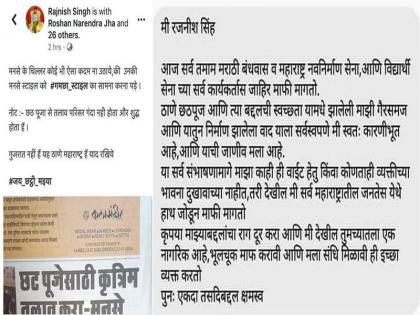 Rajnish Singh is with
Roshan Narendra Jha and
26 others.
2 hrs
मनसे के चिल्लर कोई भी ऐसा कदम ना उठाये,की उनकी
मनसे स्टाइल को #गमछा_स्टाइल का सामना करना पड़े ।
नोट :- छठ पूजा से तलाव परिसर गंदा नही होता और शुद्ध
होता हैं ।
गुजरात नहीं हैं यह ठाणे महाराष्ट्र हैं याद रखिये
#जय_छट्ठी_मइया
छट पूजेसाठी कृत्रिम
तलाव करा-मनसे
मी रजनीश सिंह
आज सर्व तमाम मराठी बंधवास व महाराष्ट्र नवनिर्माण सेना,आणि विद्यार्थी
सेना च्या सर्व कार्यकर्तास जाहिर माफी मागतो.
ठाणे छठपूजा आणि त्या बद्दलची स्वच्छता यामधे झालेली माझी गैरसमज
आणि यातुन निर्माण झालेला वाद याला सर्वस्वपणे मी स्वतः कारणीभूत
आहे,आणि याची जाणीव मला आहे.
या सर्व संभाषणामागे माझा काही ही वाईट हेतु किंवा कोणताही व्यक्तीच्या
भावना दुखावच्या नाहीत,तरी देखील मी सर्व महाराष्ट्रातील जनतेस येथे
हाथ जोंडून माफी मागतो
कृपया माझ्याबद्दलांचा राग दूर करा आणि मी देखील तुमच्यातला एक
नागरिक आहे,भूलचूक माफ करावी आणि मला संधि मिळावी ही इच्छा
व्यक्त करतो
पुनः एकदा तसदिबद्दल क्षमस्व